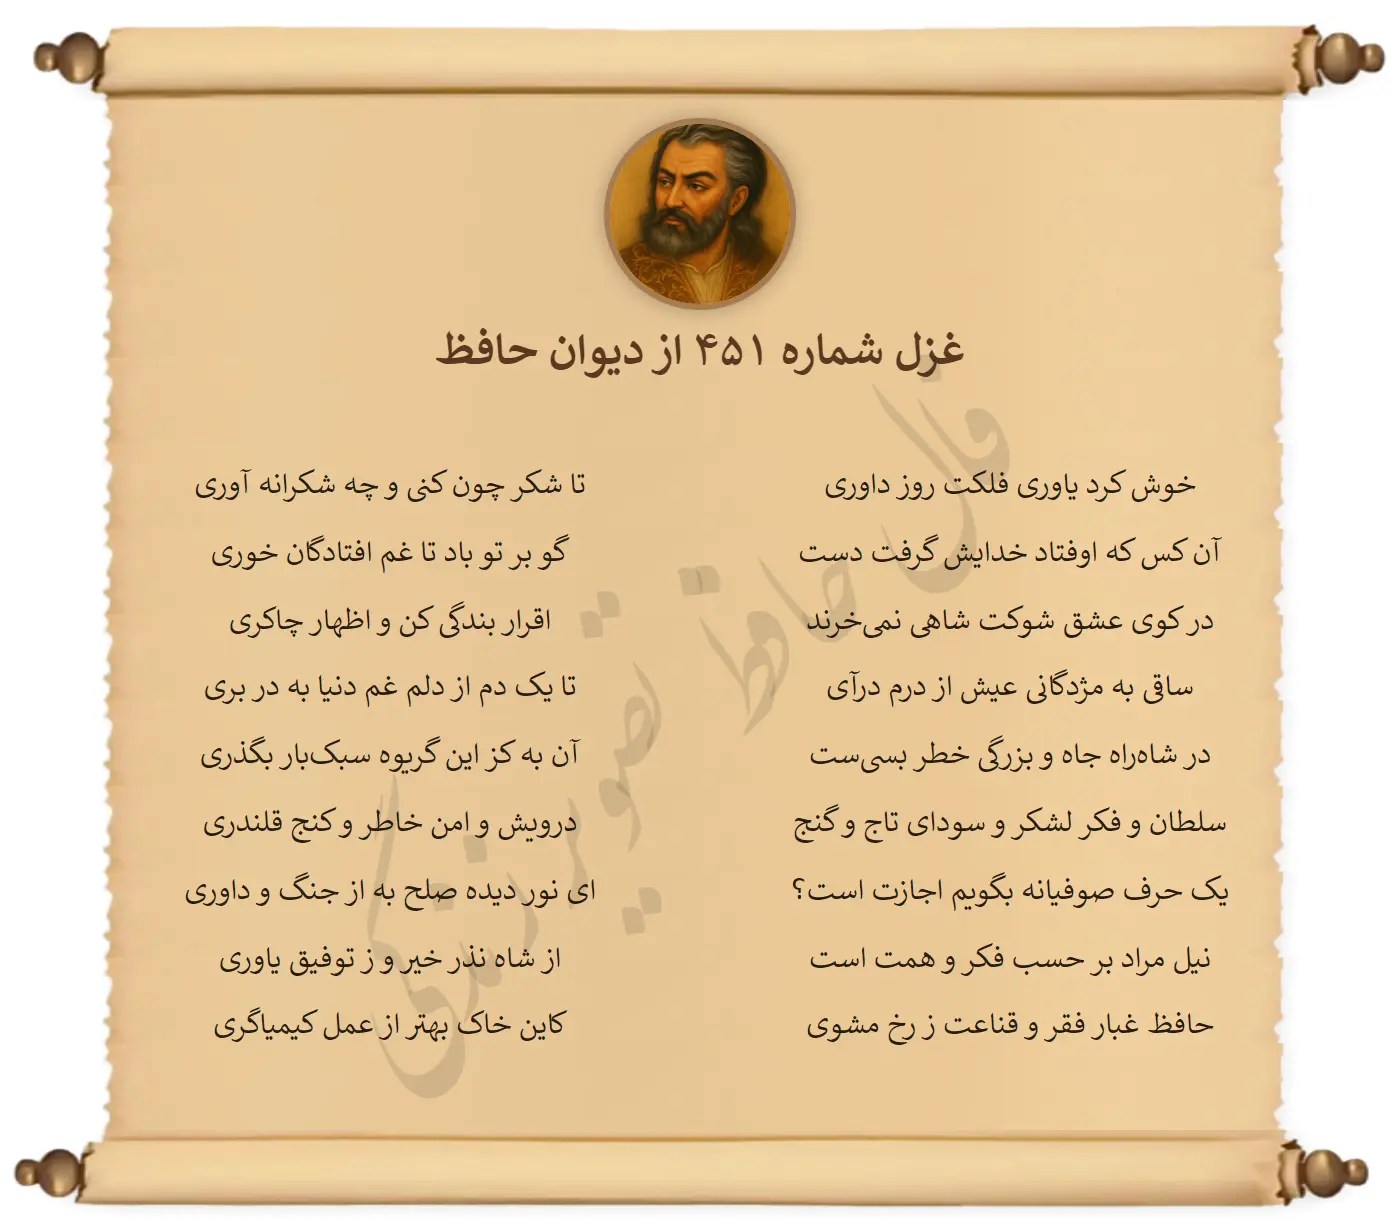 غزل شماره ۴۵۱ از دیوان حافظ
خوش کرد یاوری فلکت روز داوری
تا شکر چون کنی و چه شکرانه آوری
آن کس که اوفتاد خدایش گرفت دست
گو بر تو باد تا غم افتادگان خوری
در کوی عشق شوکت شاهی نمی‌خرند
اقرار بندگی کن و اظهار چاکری
ساقی به مژدگانی عیش از درم درآی
تا یک دم از دلم غم دنیا به در بری
در شاه‌راه جاه و بزرگی خطر بسی‌ست
آن به کز این گریوه سبک‌بار بگذری
سلطان و فکر لشکر و سودای تاج و گنج
درویش و امن خاطر و کنج قلندری
یک حرف صوفیانه بگویم اجازت است؟
ای نور دیده صلح به از جنگ و داوری
نیل مراد بر حسب فکر و همت است
از شاه نذر خیر و ز توفیق یاوری
حافظ غبار فقر و قناعت ز رخ مشوی
کاین خاک بهتر از عمل کیمیاگری
فال حافظ تصویر زندگی